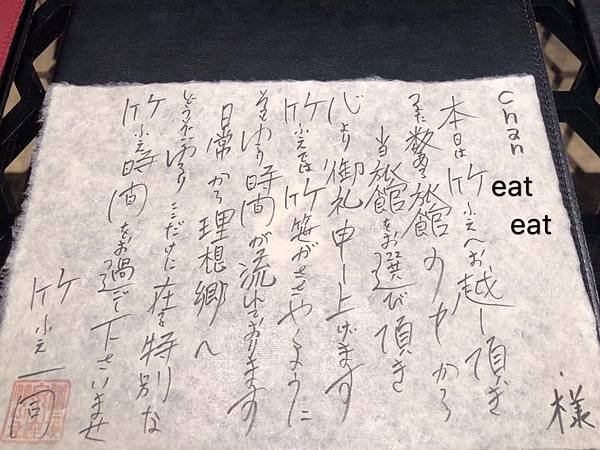 chan eat eat 様
本日は竹ふえへお越し頂き
また数ある旅館の中から
当旅館をお選び頂き
心より御礼申し上げます
竹ふえでは竹笹がささやくように
時間が流れております
日常から理想郷へ
どうぞごゆるりここだけに在る特別な
竹ふえ時間をお過ごし下さいませ
竹ふえ一同